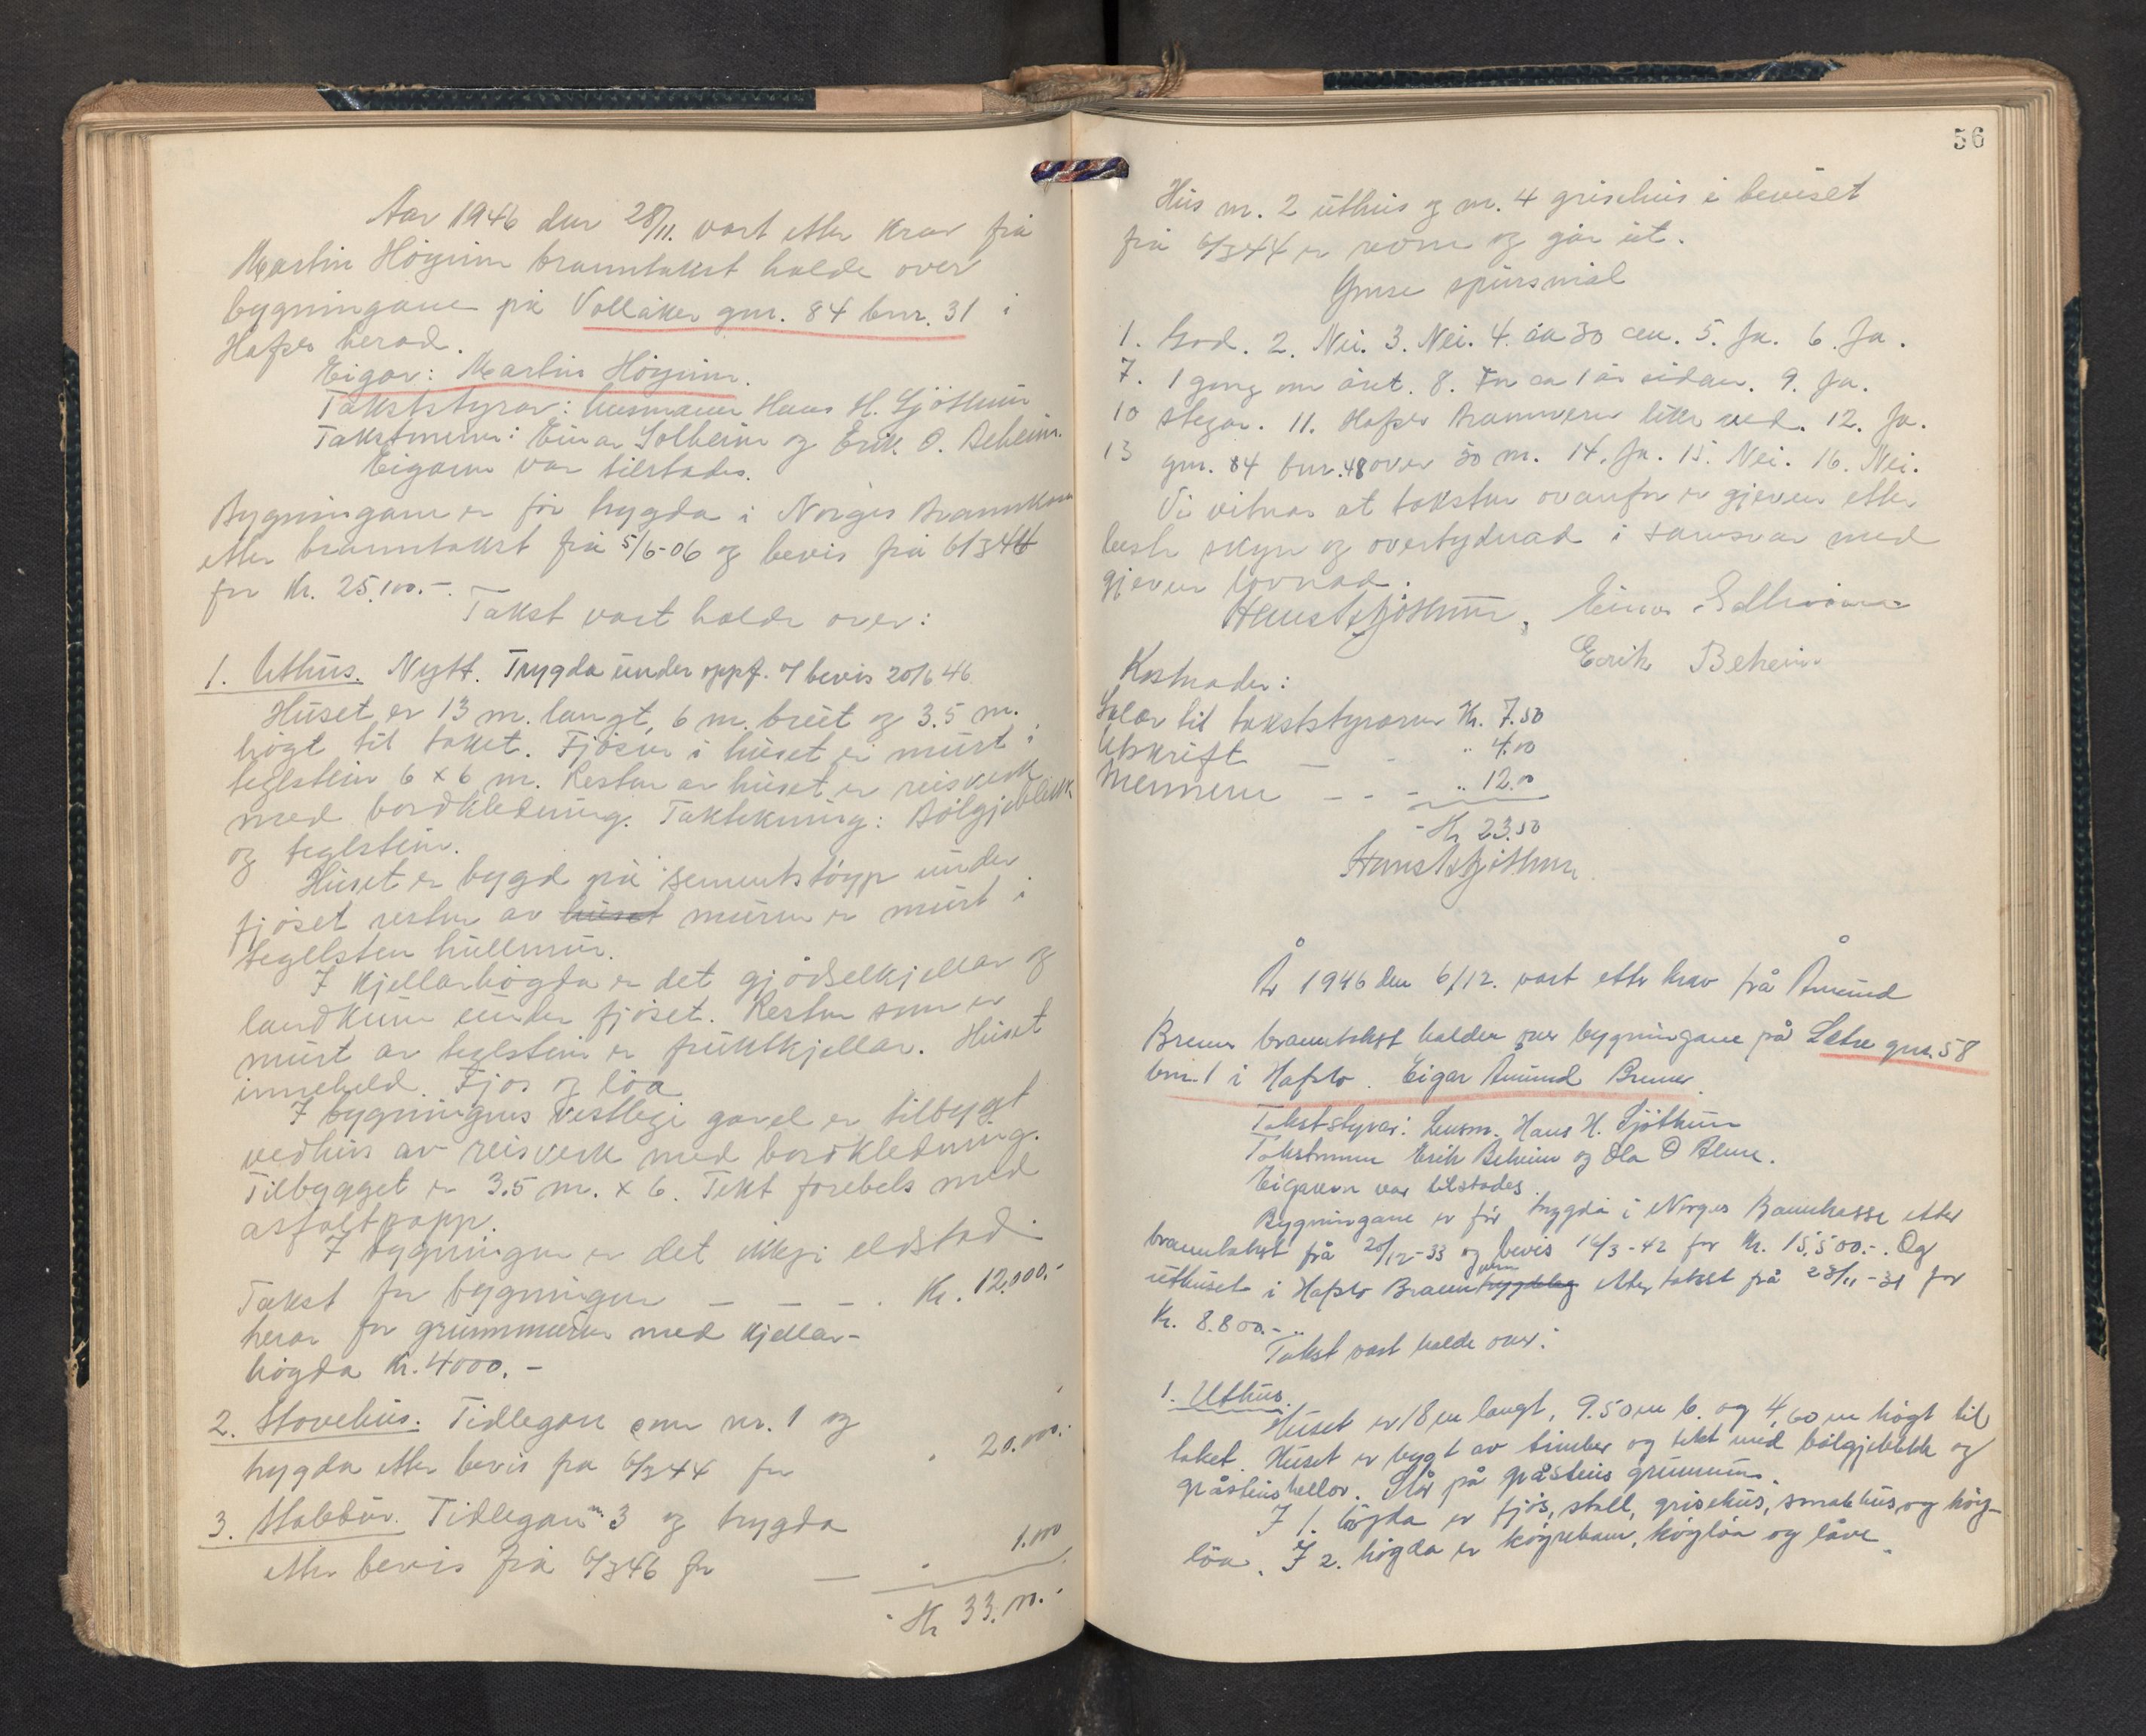 Aar 1946 den 28/11. vart etter krav frå
Martin Höyum branntakst halde over
bygningane på Vollåker gnr. 84 bnr. 31 i
Hafslo herad.
Eigar: Martin Höyum.
Takststyrar: lensmann Hans H. Sjöthun
Takstmenn: Einar Solheim og Erik O. Beheim.
Eigaren var tilstades.
Bygningane er för trygda i Norges Brannkasse
etter branntakst frå 5/6-06 og bevis frå 6/3 44
for Kr. 25.100.-.
Takst vart halde over:
1. Uthus. Nytt. Trygda under oppf. 7 bevis 20/6 46
Huset er 13 m. langt, 6 m. breit og 3.5 m.
högt til taket. Fjösen i huset er murt i
teglstein 6 x 6 m. Resten av huset er reisverk
med bordkledning. Taktekning: Bölgjeblekk
og teglstein.
Huset er bygd på sementstöyp under
fjöset resten av huset muren er murt i
teglsten hullmur.
I kjellarhögda er det gjödselkjellar og
landkum under fjöset. Resten som er
murt av teglstein er fruktkjellar. Huset
inneheld. Fjos og löa
I bygningens vestlege gavel er tilbygt
vedhus av reisverk med bordkledning.
Tilbygget er 3.5 m. x 6. Tekt forebels med
asfaltpapp.
I bygningen er det ikkje eldstad.
Takst for bygningen - - - . Kr. 12.000.-
herav for grunnmuren med kjellar-
högda Kr. 4000.-
2. Stovehus. Tidlegare som nr. 1 og
trygda etter bevis frå 6/3 44 for " 20.000.-
3. Stabbur. Tidlegare nr. 3 og trygda
etter bevis frå 6/3 46 for — " 1.100
Kr 33.100.-
56
Hus nr. 2 uthus og nr. 4 grisehus i beviset
frå 6/3 44 er revne og går ut.
Ymse spursmål
1. God. 2. Nei. 3. Nei. 4. ca 30 cm. 5. Ja. 6. Ja.
7. 1 gong om året. 8. For ca 1 år sidan. 9. Ja.
10 stegar. 11. Hafslo Brannvern like ved. 12. Ja.
13 gnr. 84 bnr. 48 over 30 m. 14. Ja. 15. Nei. 16. Nei.
Vi vitnar at taksten ovanfor er gjeven etter
beste skyn og overtydnad i samsvar med
gjeven lovnad.
Hans H Sjöthun, Einar Solheim
Erik Beheim
Kostnader:
Salær til takststyraren Kr. 7.50
Utskrift — - " 4.00
Mennene - - - " 12.00
Kr 23.50
Hans H Sjöthun
År 1946 den 6/12. vart etter krav frå Åmund
Bremer branntakst halden over bygningane på Sætre gnr. 58
bnr. 1 i Hafslo. Eigar Åmund Bremer.
Takststyrar: Lensm. Hans H. Sjöthun
Takstmenn Erik Beheim og Ola O Alme.
Eigaren var tilstades.
Bygningane er för trygda i Norges Brannkasse etter
branntakst frå 20/12-33 og bevis 14/3-42 for Kr. 15,500.-. Og
uthuset i Hafslo Branntrygdelag etter takst frå 28/11-31 for
Kr. 8.800.-..
Takst vart halde over:
1. Uthus.
Huset er 18 m langt, 9.50 m b. og 4,60 m högt til
taket. Huset er bygt av timber og tekt med bölgjeblekk og
gråsteinshellor. Står på gråsteins grunnmur.
I 1. högda er fjös, stall, grisehus, smalehus, og höy-
löa. I 2. högda er köyrebane, höylöa og låve.